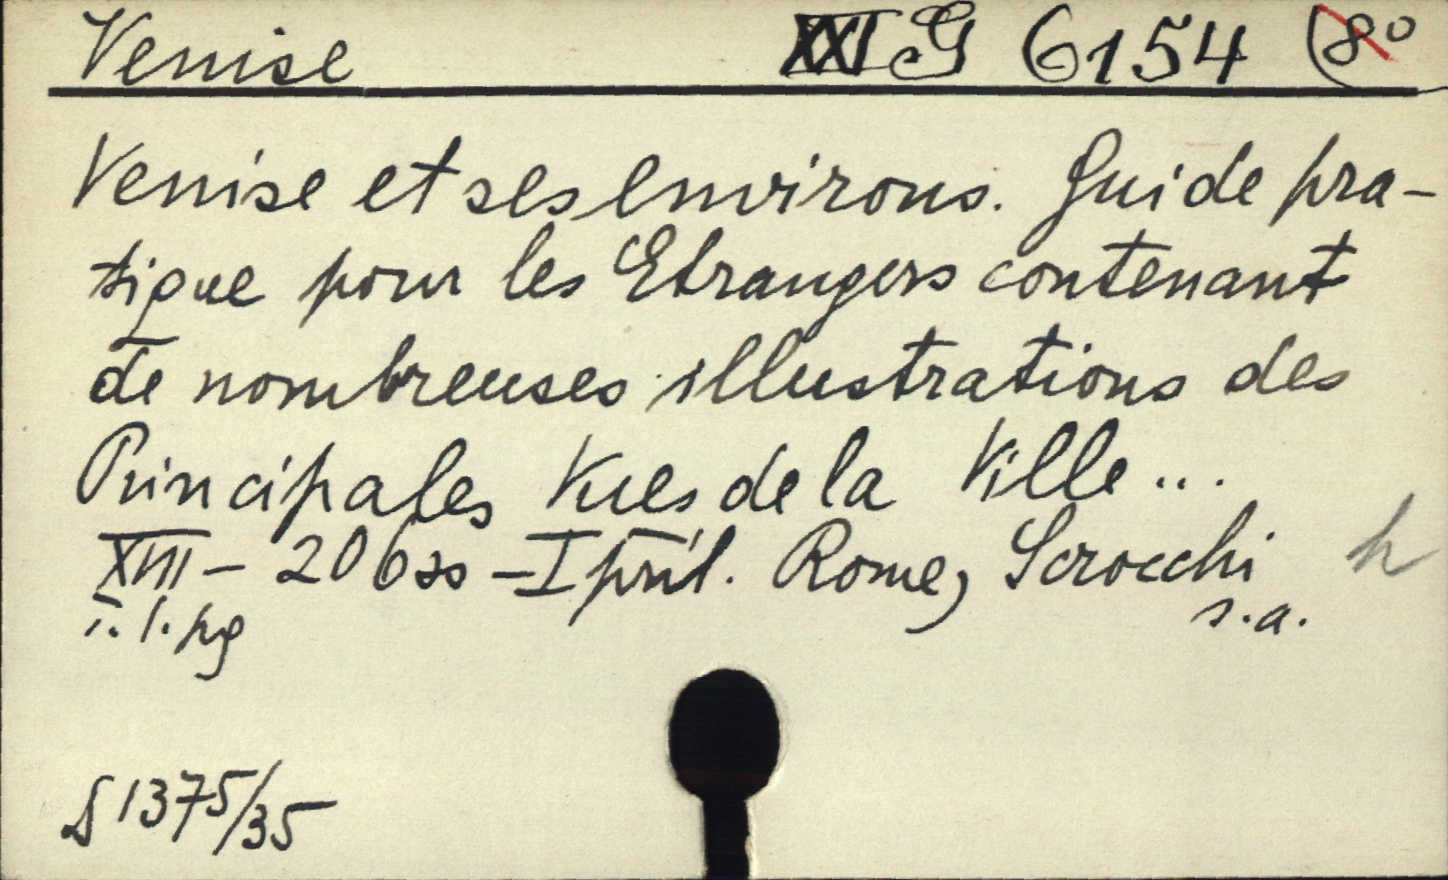 Venise XXI G 6154 (8°
Venise et ses environs. Guide pra-
tique pour les Etrangers contenant
de nombreuses illustrations des
Principales Vues de la Ville ...
XIII - 206 ss - I pril. Rome, Scrocchi h
s.a.
i. l. pg
S 1375/35